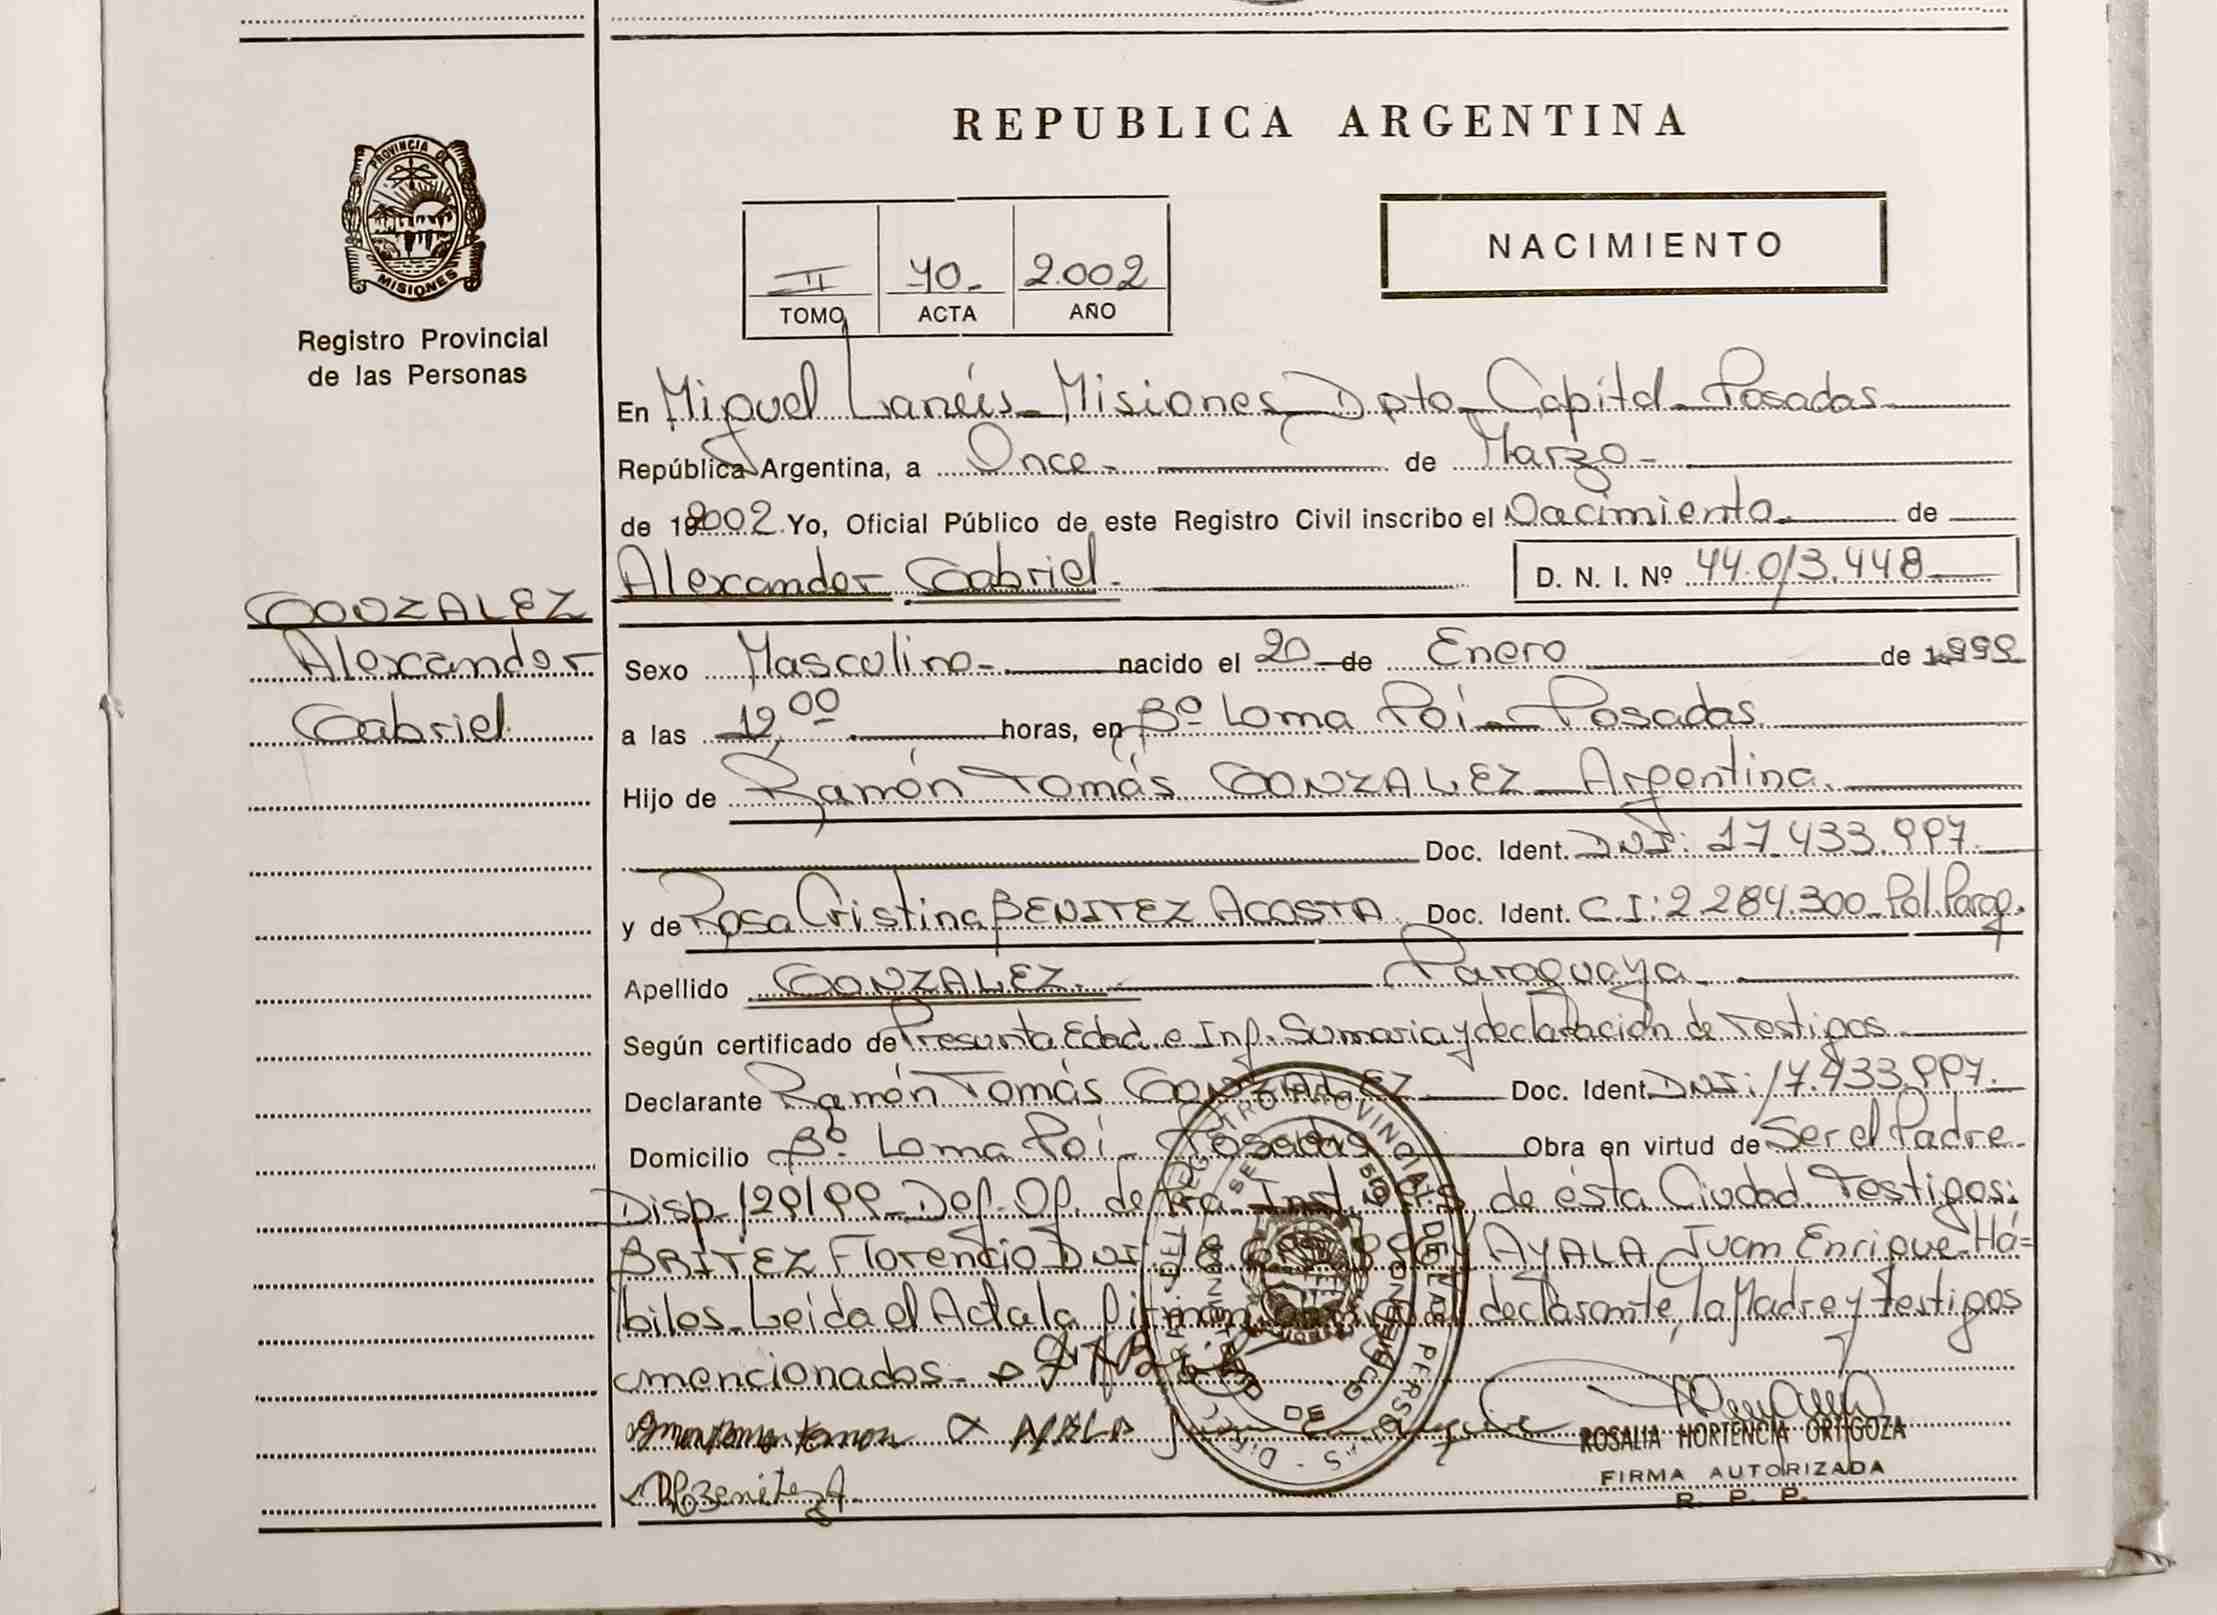 PROVINCIA DE
MISIONES
Registro Provincial
de las Personas
GONZALEZ
Alexander
Gabriel
REPUBLICA ARGENTINA
NACIMIENTO
II 40- 2.002
TOMO ACTA AÑO
En Miguel Lanús - Misiones Dpto. Capital - Posadas
República Argentina, a Once - de Marzo -
de 2002 Yo, Oficial Público de este Registro Civil inscribo el Nacimiento - de
Alexander Gabriel - D. N. I. Nº 44.013.448
Sexo Masculino - nacido el 20 - de Enero de 1.999
a las 12,00 horas, en Bº Loma Poí - Posadas
Hijo de Ramón Tomás GONZALEZ - Argentina.
Doc. Ident. DNI: 17.433.997.
y de Rosa Cristina BENITEZ ACOSTA Doc. Ident. C.I: 2.284.300 - Pol. Parag.
Apellido GONZALEZ. Paraguaya
Según certificado de Presunta Edad e Inf. Sumaria y declaración de Testigos
Declarante Ramón Tomás GONZALEZ Doc. Ident. DNI: 17.433.997.
Domicilio Bº Loma Poí - Posadas Obra en virtud de Ser el Padre -
Disp. 129/99 - Def. Of. de 1ra Inst. de ésta Ciudad Testigos:
BRITEZ Florencio DNI AYALA Juan Enrique - Há=
biles - Leída el Acta la firman declarante, la Madre y testigos
mencionados -
AYALA Juan Enrique
R Benitez A
ROSALIA HORTENCIA ORTIGOZA
FIRMA AUTORIZADA
R. P. P.
REGISTRO PROVINCIAL DE LAS PERSONAS